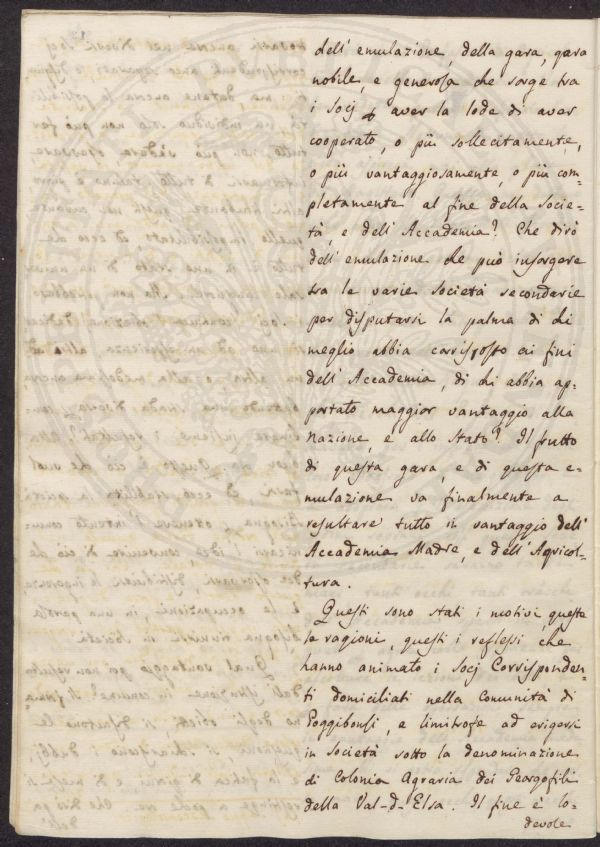 dell' emulazione, della gara, gara
nobile, e generosa che sorge tra
i Socj di aver la lode di aver
cooperato, o più sollecitamente,
o più vantaggiosamente, o più com-
pletamente al fine della Socie-
tà, e dell' Accademia? Che dirò
dell' emulazione che può insorgere
tra le varie Società secondarie
per disputarsi la palma di chi
meglio abbia corrisposto ai fini
dell' Accademia, di chi abbia ap-
portato maggior vantaggio alla
Nazione, e allo Stato? Il frutto
di questa gara, e di questa e-
mulazione va finalmente a
resultare tutto in vantaggio dell'
Accademia Madre, e dell' Agricol-
tura.
Questi sono stati i motivi, queste
le ragioni, questi i reflessi che
hanno animato i Socj Corrisponden-
ti domiciliati nella Comunità di
Poggibonsi, e limitrofe ad erigersi
in Società sotto la denominazione
di Colonia Agraria dei Georgofili
della Val-d-Elsa. Il fine è lo-
devole